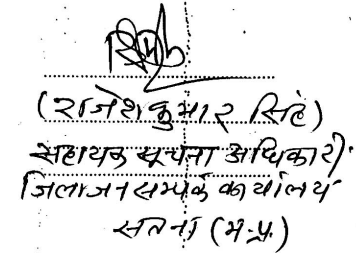 (राजेश कुमार सिंह)
सहायक सूचना अधिकारी
जिला जन सम्पर्क कार्यालय
सतना (म.प्र.)